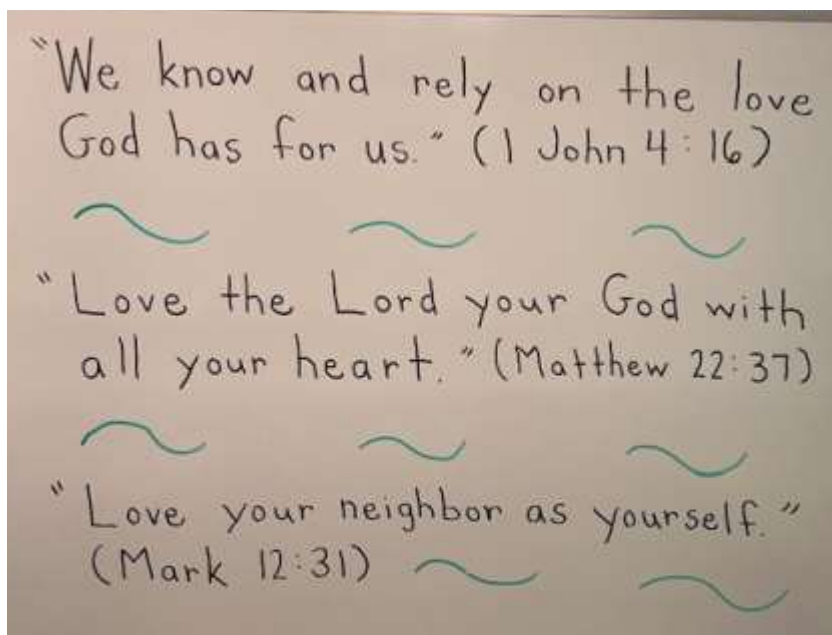 "We know and rely on the love
God has for us." (1 John 4:16)
"Love the Lord your God with
all your heart." (Matthew 22:37)
"Love your neighbor as yourself."
(Mark 12:31)